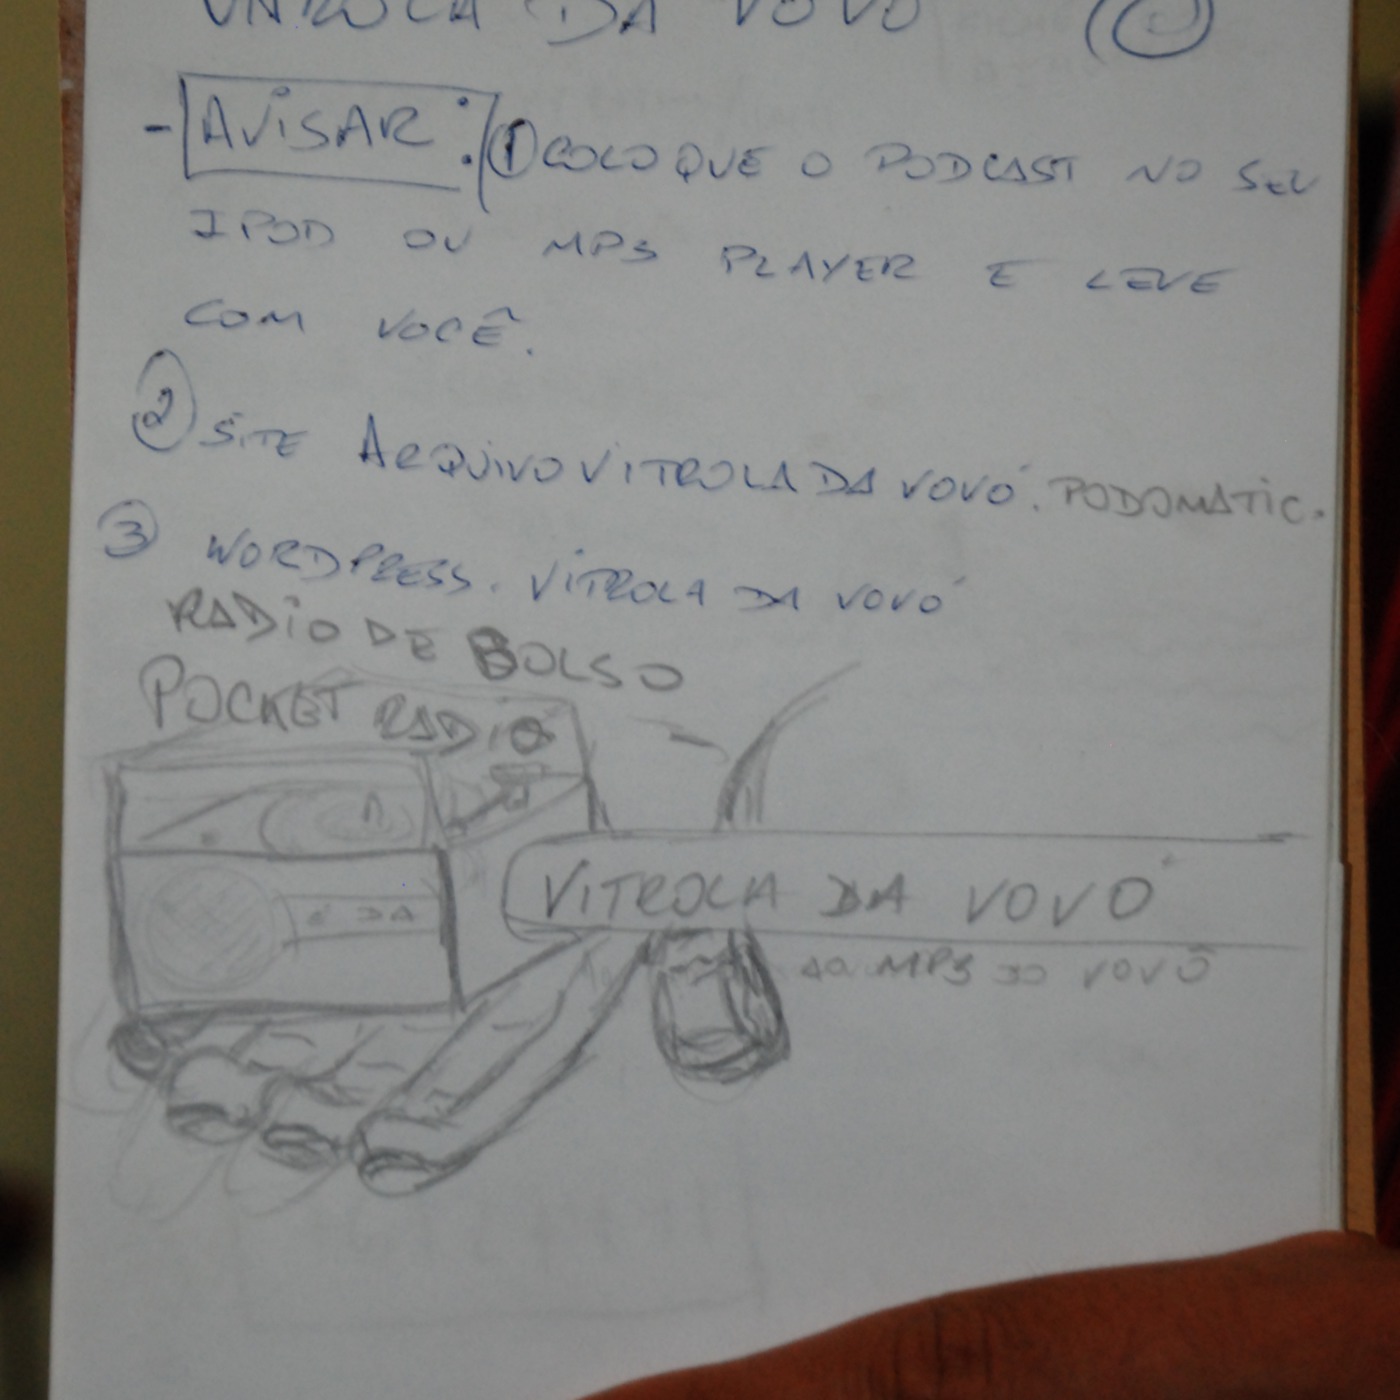 VITROLA DA VOVÓ
- AVISAR: 1 COLOQUE O PODCAST NO SEU
IPOD OU MP3 PLAYER E LEVE
COM VOCÊ.
2 SITE ARQUIVOVITROLADAVOVÓ. PODOMATIC.
3 WORDPRESS. VITROLA DA VOVÓ
RADIO DE BOLSO
POCKET RADIO
VITROLA DA VOVÓ
MP3 VOVÔ